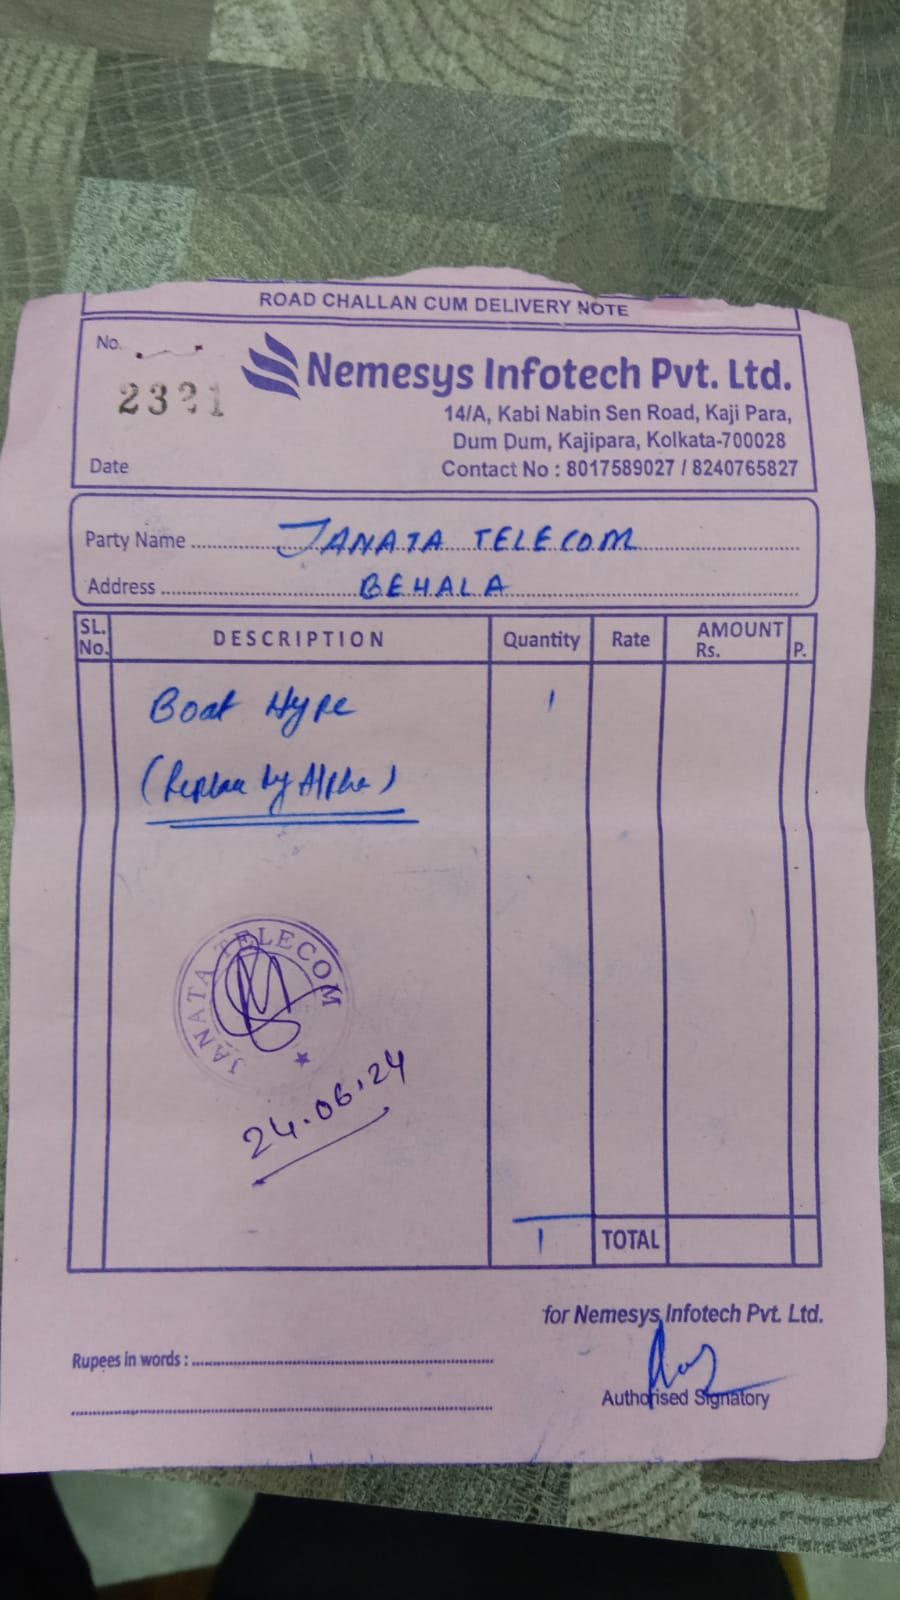 ROAD CHALLAN CUM DELIVERY NOTE
No.
Nemesys Infotech Pvt. Ltd.
14/A, Kabi Nabin Sen Road, Kaji Para,
Dum Dum, Kajipara, Kolkata-700028
Date
Contact No : 8017589027 / 8240765827
Party Name JANATA TELECOM
Address BEHALA
SL. No. DESCRIPTION Quantity Rate AMOUNT Rs. P.
Boat Hype 1
by Alpha)
JANATA TELECOM
24.06.24
1 TOTAL
for Nemesys Infotech Pvt. Ltd.
Rupees in words :
Authorised Signatory